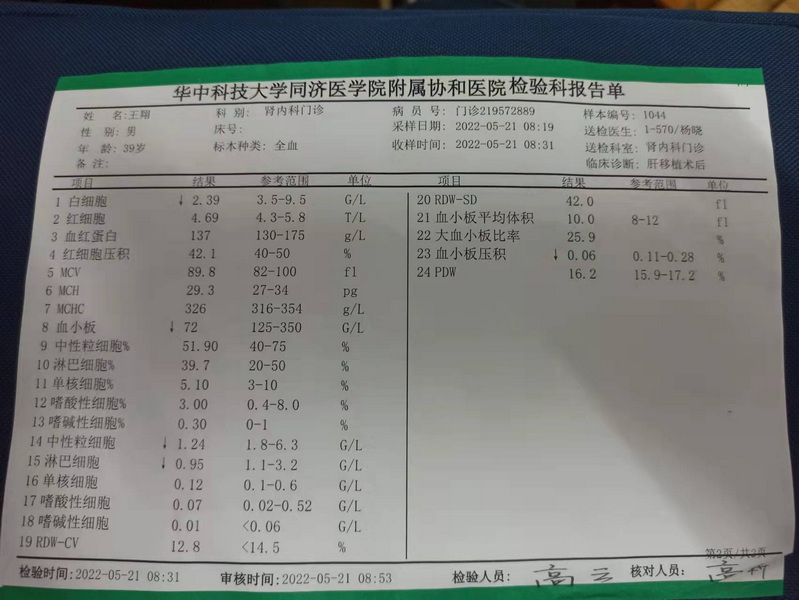 华中科技大学同济医学院附属协和医院检验科报告单
姓 名:王翔 科 别: 肾内科门诊 病 员 号: 门诊219572889 样本编号: 1044
性 别: 男 床号: 采样日期: 2022-05-21 08:19 送检医生: 1-570/杨晓
年 龄: 39岁 标本种类: 全血 收样时间: 2022-05-21 08:31 送检科室: 肾内科门诊
备 注: 临床诊断: 肝移植术后
项目 结果 参考范围 单位 项目 结果 参考范围 单位
1 白细胞 ↓ 2.39 3.5-9.5 G/L
2 红细胞 4.69 4.3-5.8 T/L
3 血红蛋白 137 130-175 g/L
4 红细胞压积 42.1 40-50 %
5 MCV 89.8 82-100 fl
6 MCH 29.3 27-34 pg
7 MCHC 326 316-354 g/L
8 血小板 ↓ 72 125-350 G/L
9 中性粒细胞% 51.90 40-75 %
10 淋巴细胞% 39.7 20-50 %
11 单核细胞% 5.10 3-10 %
12 嗜酸性细胞% 3.00 0.4-8.0 %
13 嗜碱性细胞% 0.30 0-1 %
14 中性粒细胞 ↓ 1.24 1.8-6.3 G/L
15 淋巴细胞 ↓ 0.95 1.1-3.2 G/L
16 单核细胞 0.12 0.1-0.6 G/L
17 嗜酸性细胞 0.07 0.02-0.52 G/L
18 嗜碱性细胞 0.01 <0.06 G/L
19 RDW-CV 12.8 <14.5 %
20 RDW-SD 42.0 fl
21 血小板平均体积 10.0 8-12 fl
22 大血小板比率 25.9 %
23 血小板压积 ↓ 0.06 0.11-0.28 %
24 PDW 16.2 15.9-17.2 %
第2页/共2页
检验时间:2022-05-21 08:31 审核时间:2022-05-21 08:53 检验人员: 高云 核对人员: